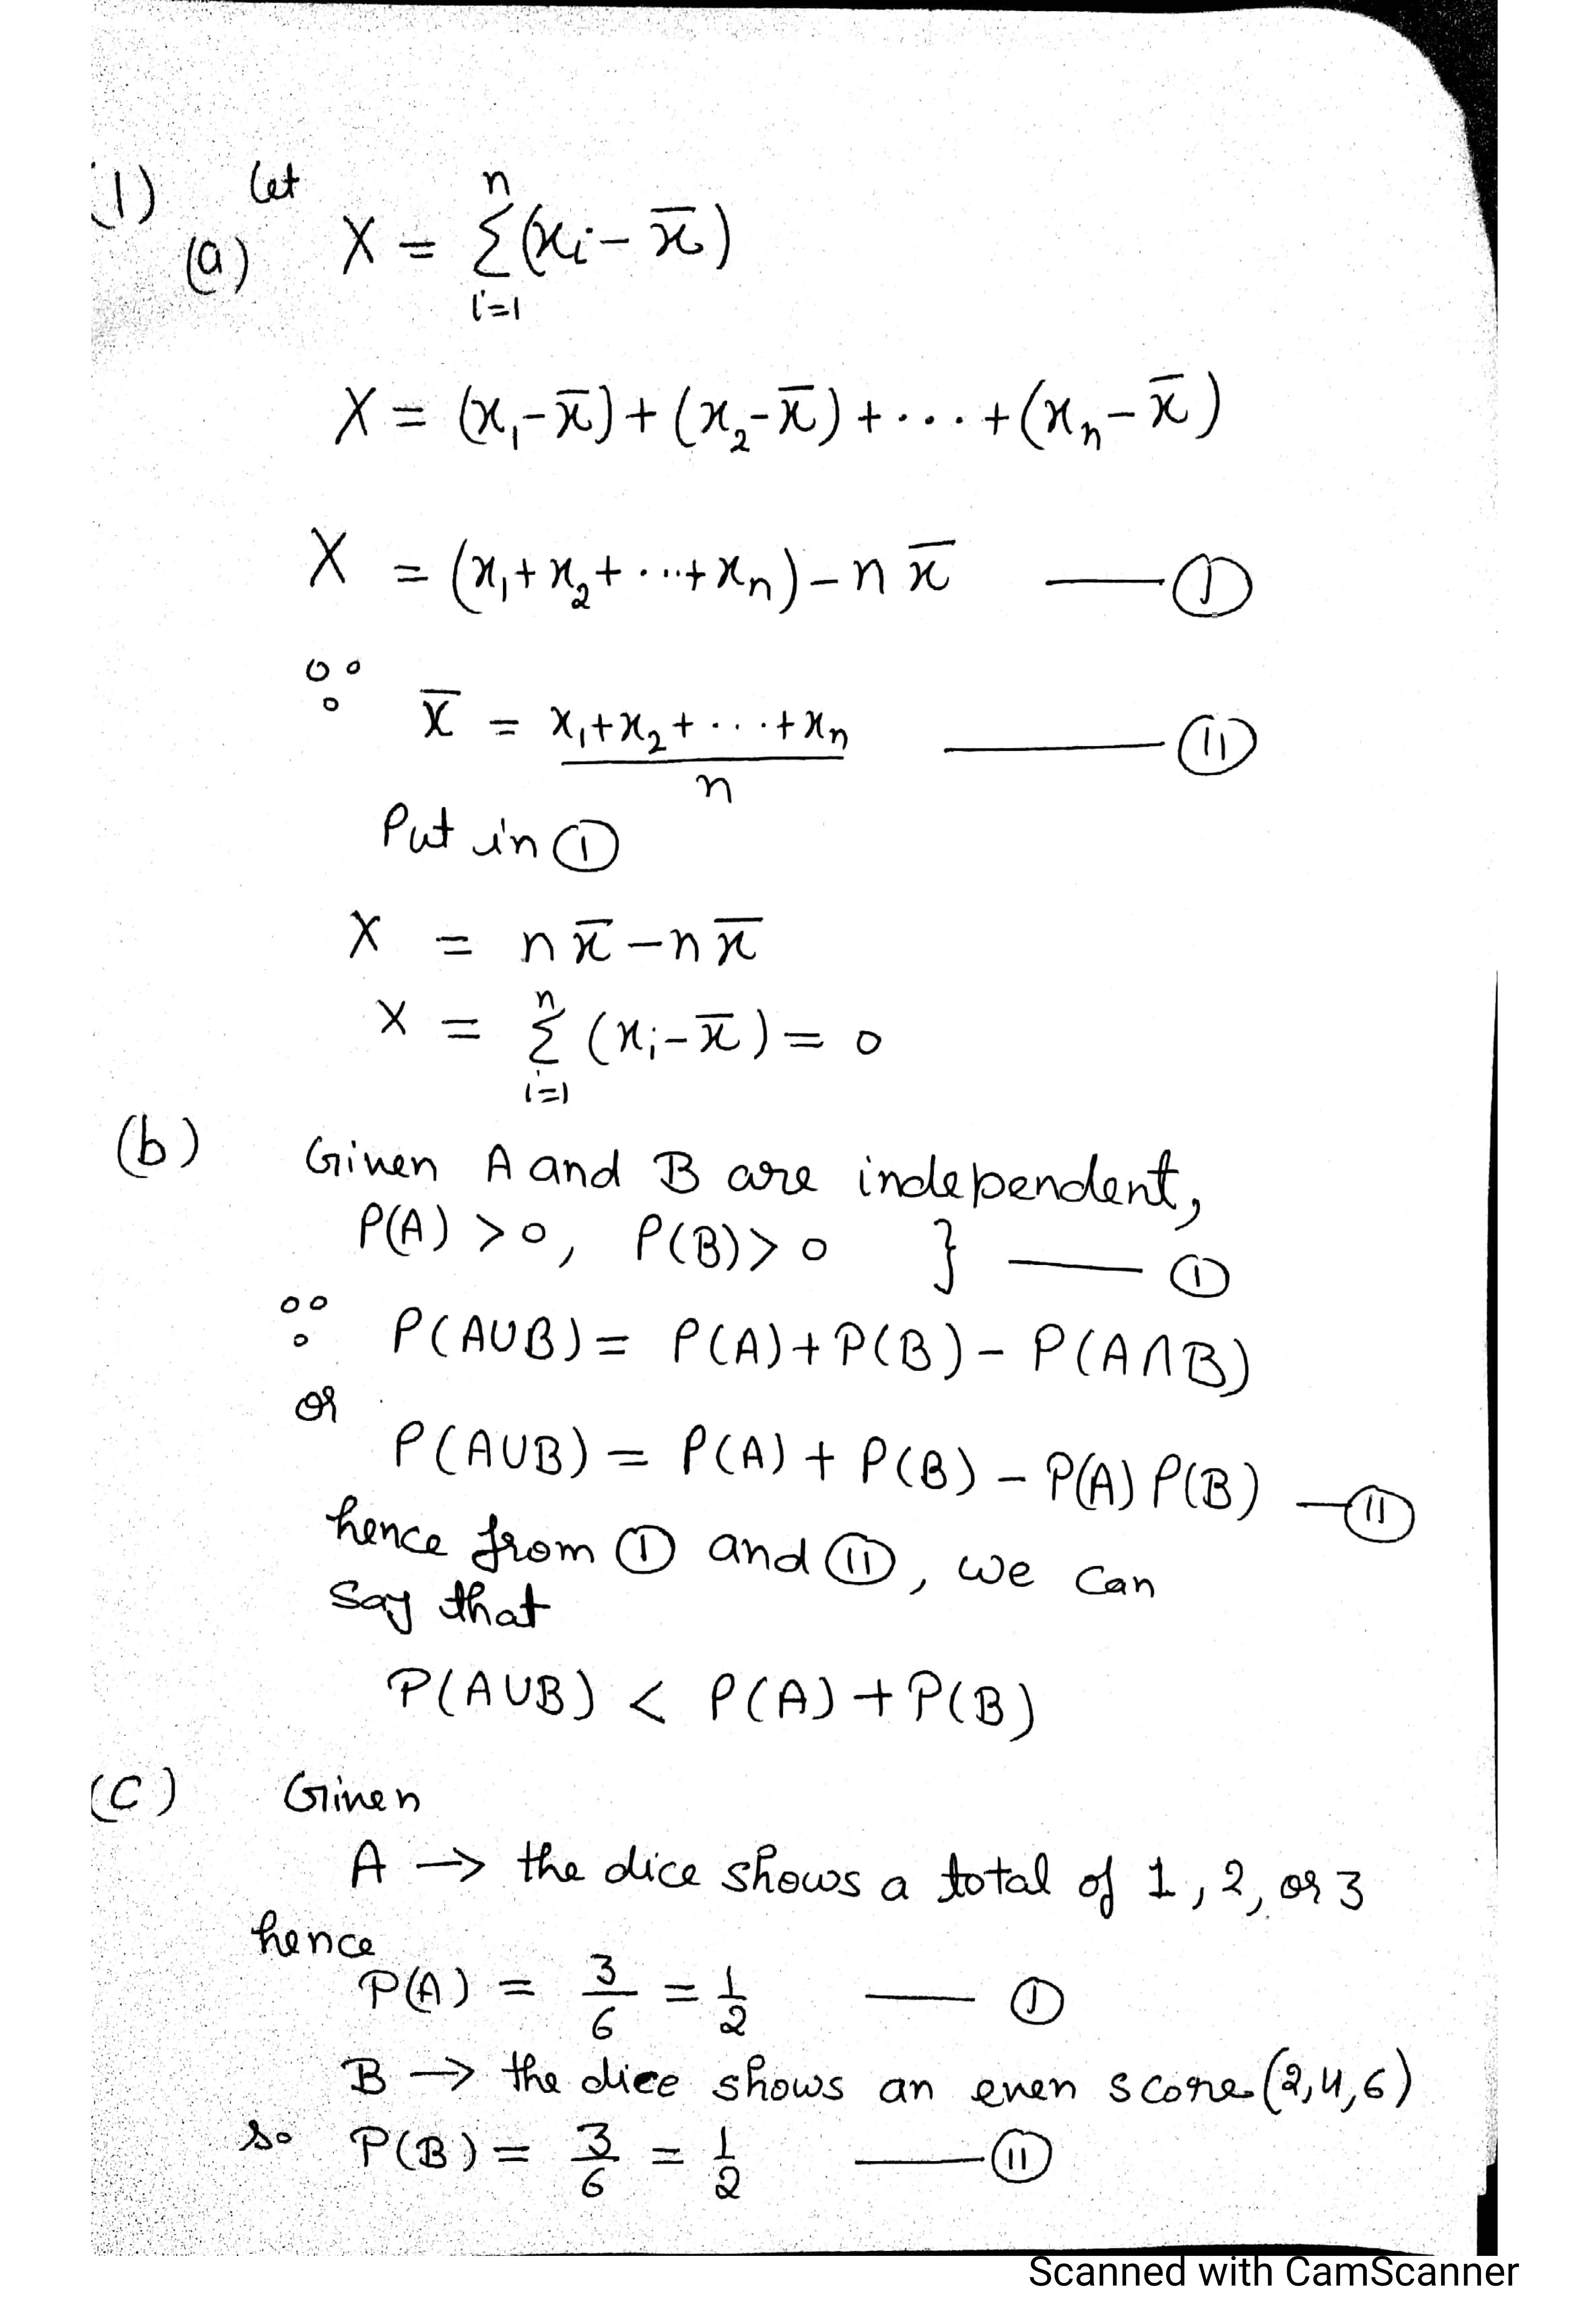 (1) Let
(a) X = n∑i=1 (xi - x̄)
X = (x₁ - x̄) + (x₂ - x̄) + ... + (xₙ - x̄)
X = (x₁ + x₂ + ... + xₙ) - n x̄ —— (I)
∵ x̄ = (x₁ + x₂ + ... + xₙ) / n —— (II)
Put in (I)
X = n x̄ - n x̄
X = n∑i=1 (xi - x̄) = 0
(b) Given A and B are independent,
P(A) > 0, P(B) > 0 } —— (I)
∵ P(A∪B) = P(A) + P(B) - P(A∩B)
or
P(A∪B) = P(A) + P(B) - P(A) P(B) — (II)
hence from (I) and (II), we can
say that
P(A∪B) < P(A) + P(B)
(C) Given
A → the dice shows a total of 1, 2, or 3
hence
P(A) = 3/6 = 1/2 —— (I)
B → the dice shows an even score (2,4,6)
so P(B) = 3/6 = 1/2 —— (II)
Scanned with CamScanner